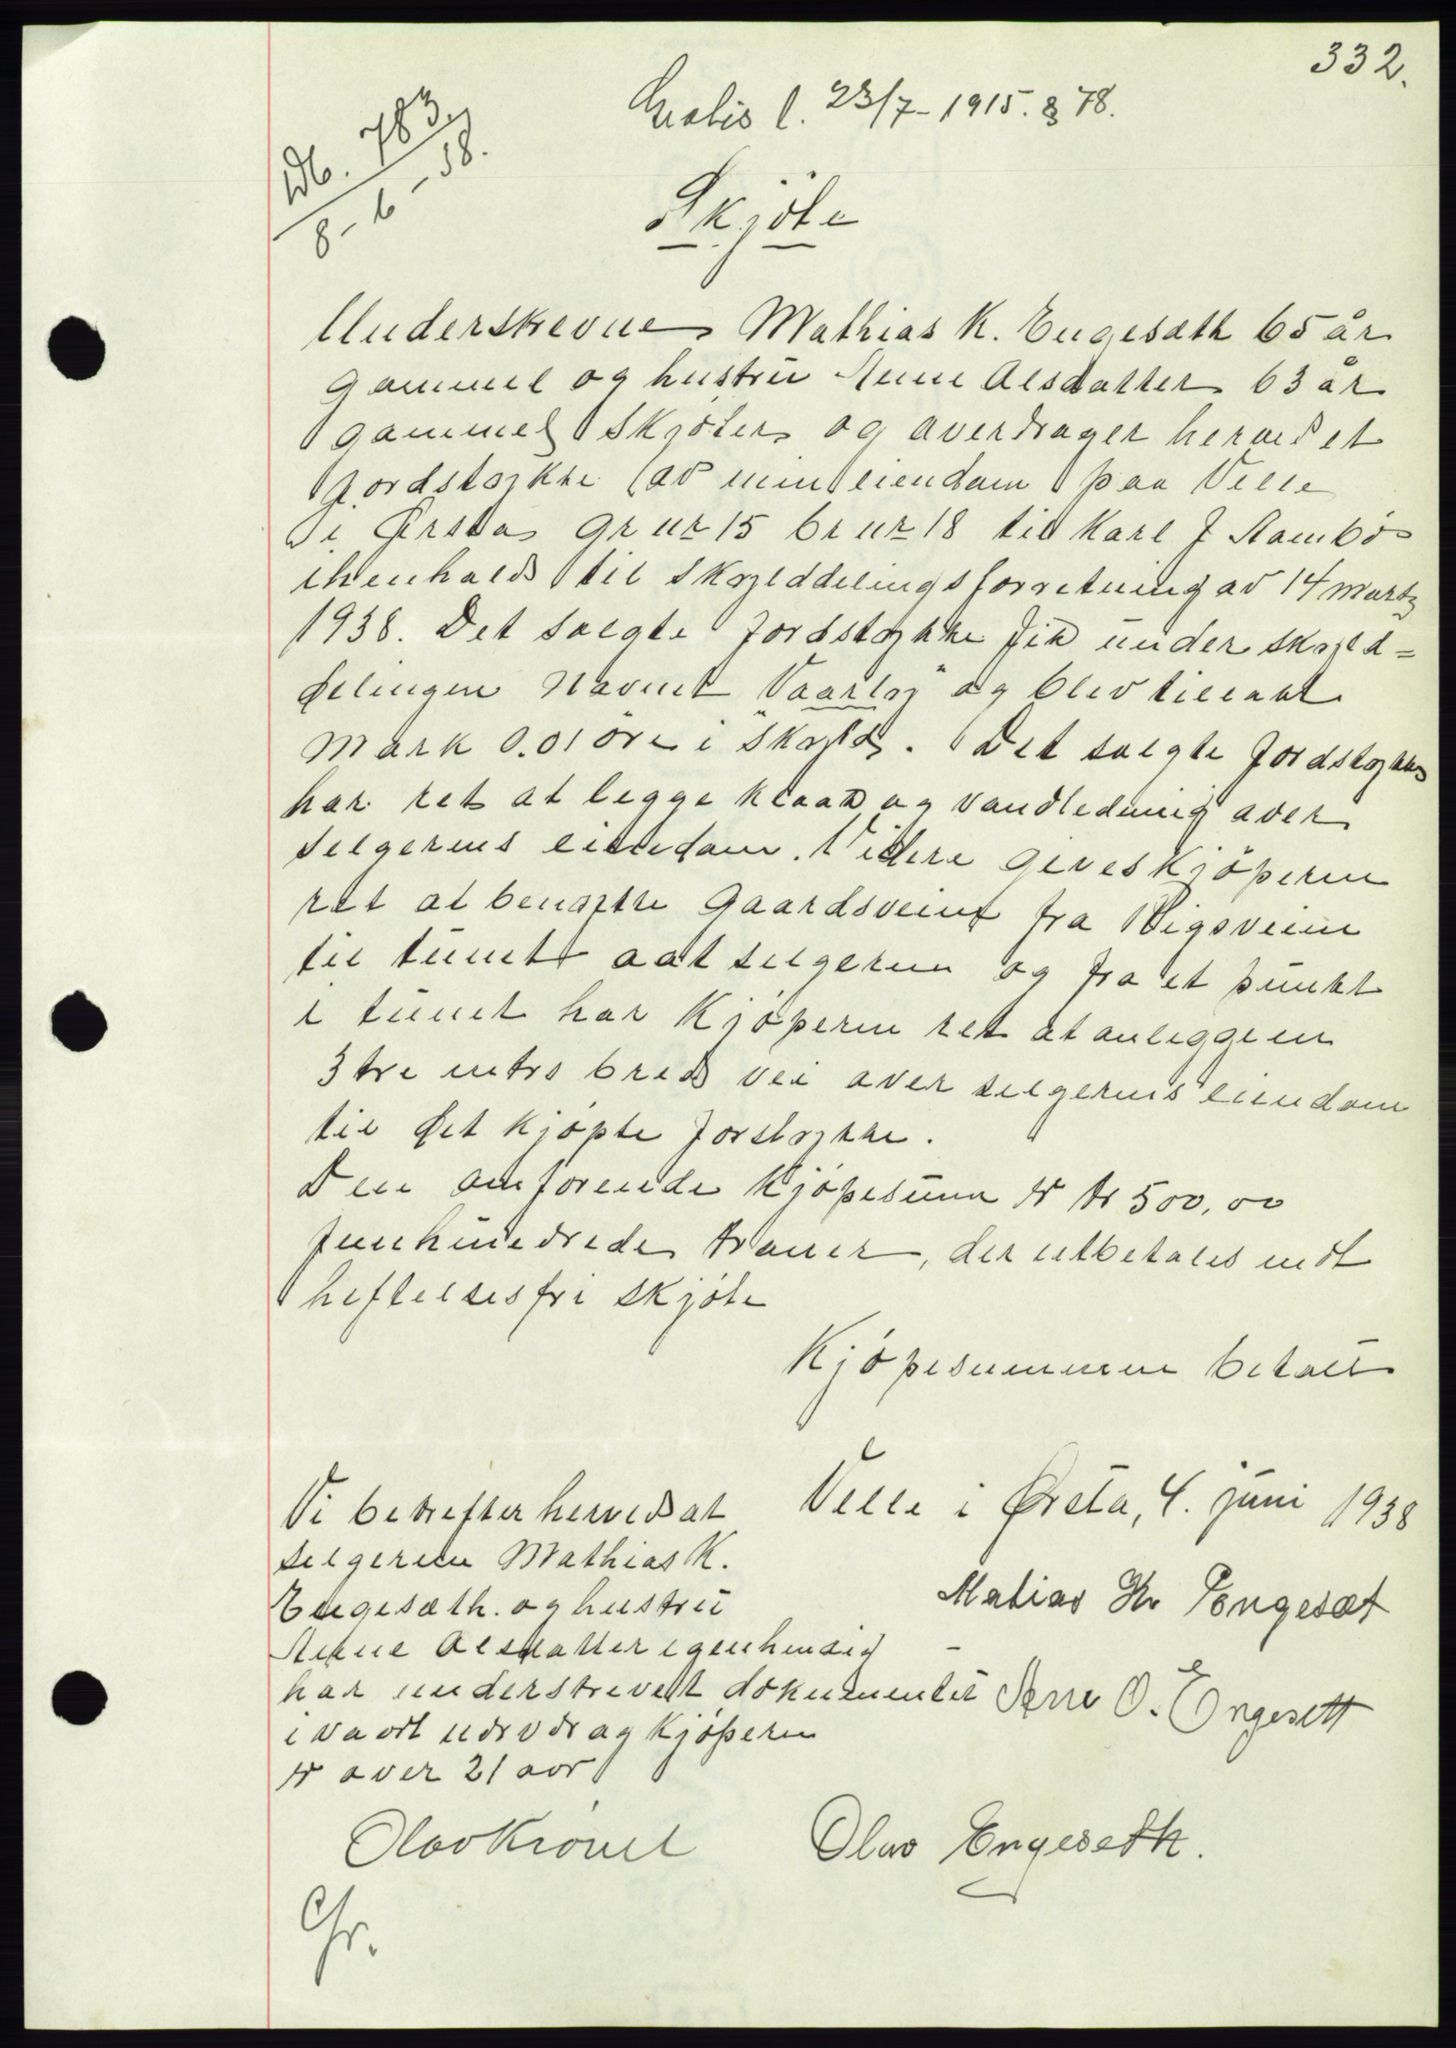 332.
Gratis l. 23/7-1915. § 78.
Db. 783
8-6-38.
Skjöte
Underskrevne Mathias K. Engesæth 65 år
gammel og hustru Anne Olsdatter 63 år
gammel Skjöter og averdrager herved et
jordstykke av min eiendom paa Velle
i Ørsta gr nr 15 br nr 18 til Karl J
ihenhold til Skylddelingsforretning av 14 marts
1938. Det solgte Jordstykke fik under skyld=
delingen Navnet "Vaartog" og blev tillakt
Mark 0.01 öre i Skyld. Det solgte Jordstykke
har ret at legge kloak og vandledning over
selgerens eiendom. Videre gives Kjöperen
ret at benytte Gaardsveien fra Rigsveien
til tunet aat selgeren og fra et punkt
i tunet har Kjöperen ret at anlegge en
3 tre mtrs bred vei over selgerens eiendom
til det kjöpte Jorstykke.
Den omforende Kjöpesum er kr 500,00
femhundrede kroner, der utbetales mot
heftelsesfri skjöte
Kjöpesummen betalt
Velle i Ørsta, 4. juni 1938
Vi betrefter herved at
selgeren Mathias K.
Engesæth. og hustru
Anne Olsdatter egenhendig
har understrevet dokumentet
i vaart nærvær og Kjöperen
er over 21 aar
Matias Kr Engesæt
Anne O. Engesett
Olav Krøvel
Olav Engeseth.